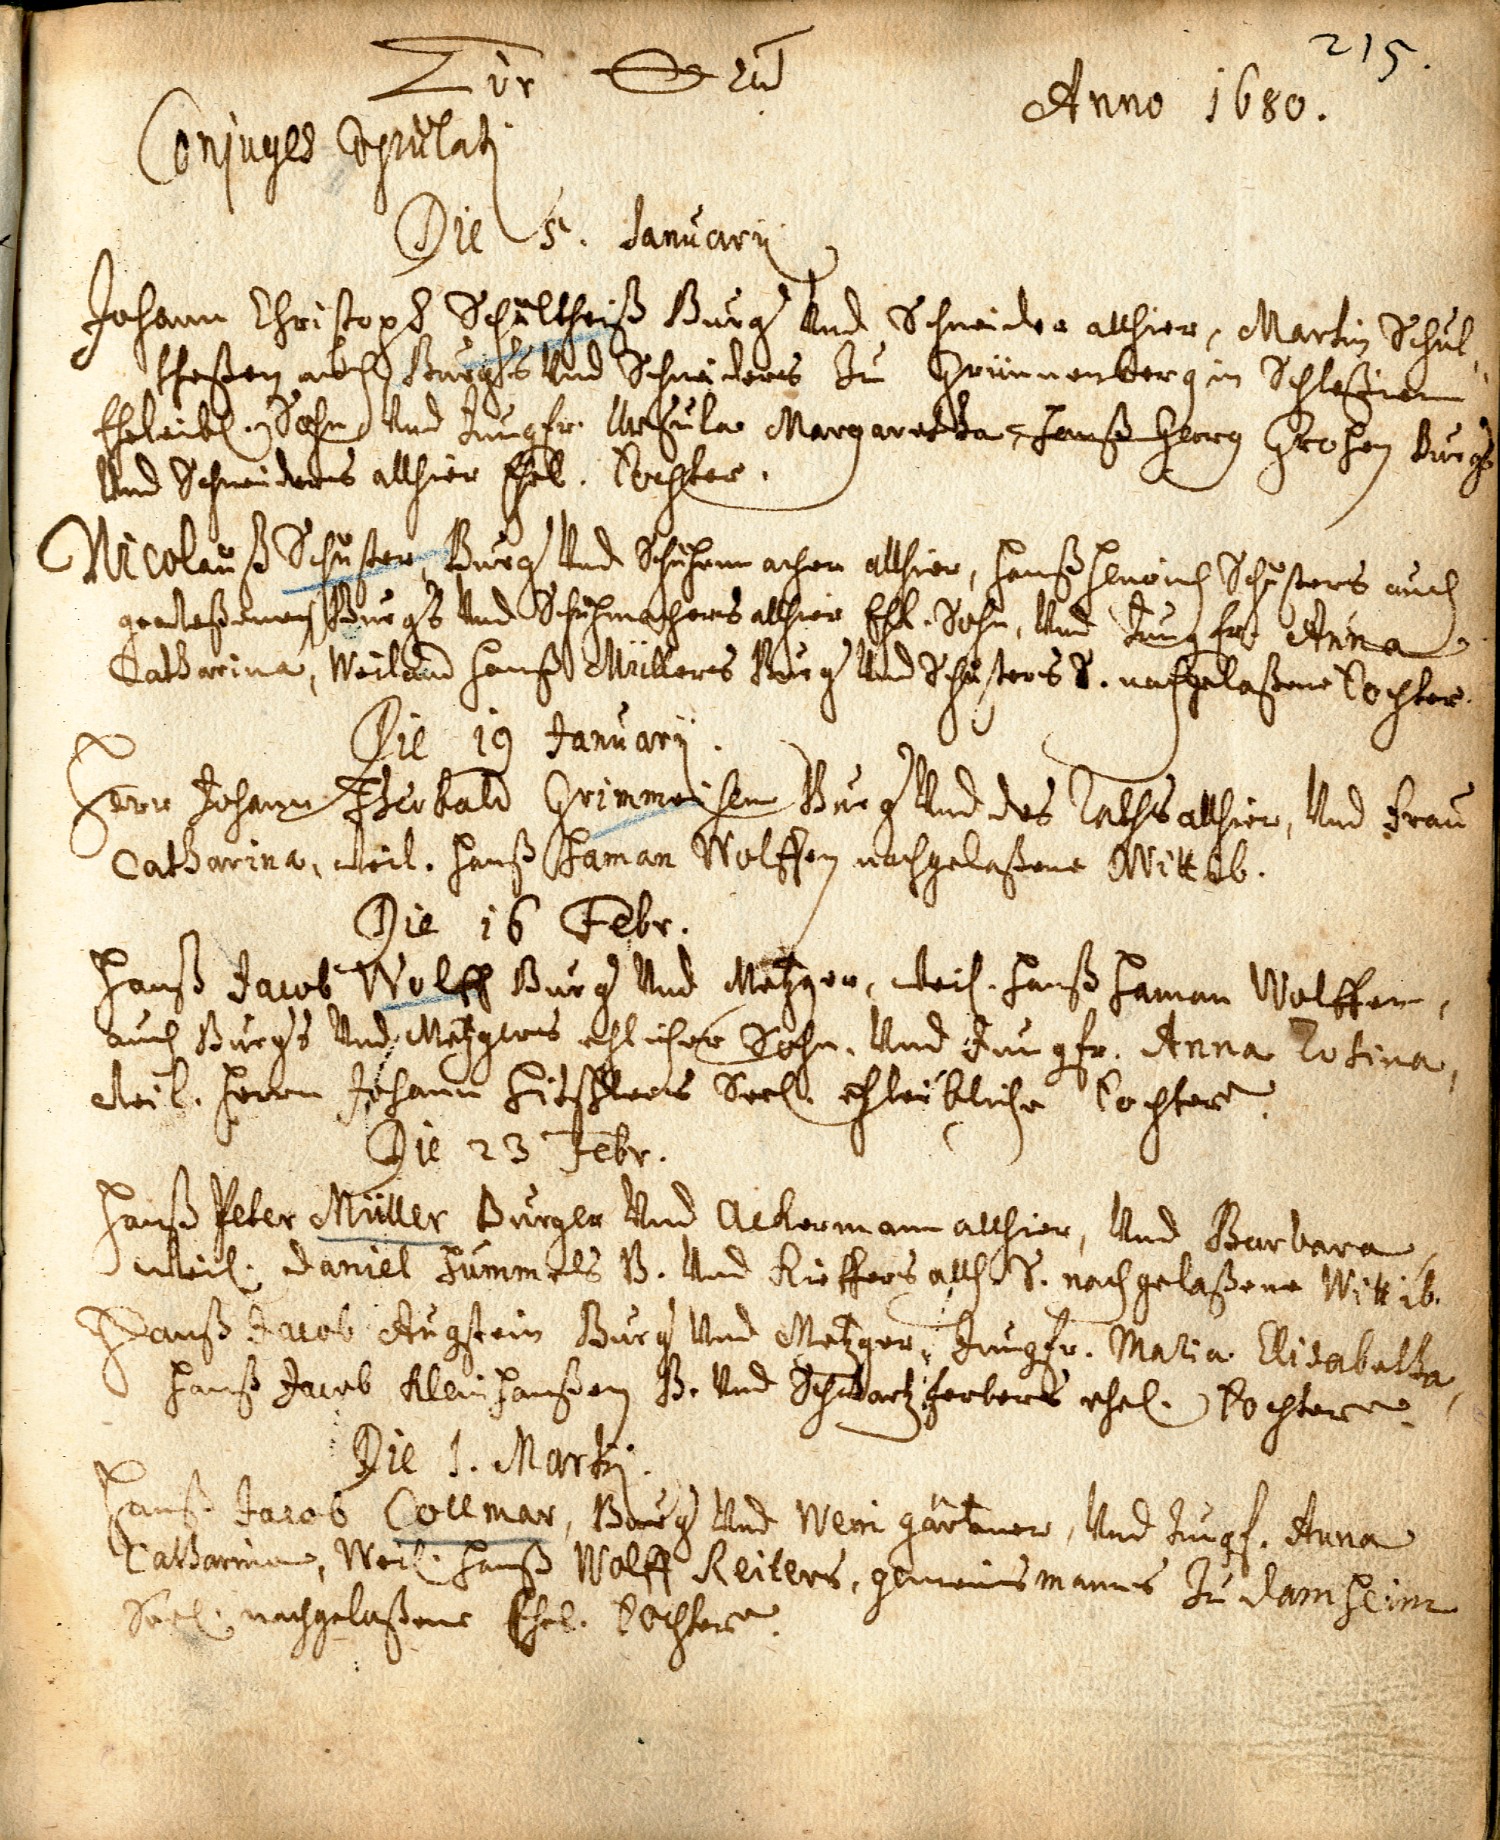 215.
Anno 1680.
Conjuges Copulati
Die 5. Januarij
Johann Christoph Schultheiß Burg. Und Schneider allhier, Martin Schul-
theßen auch Burg.s Und Schneiders Zu Grünnenberg in Schleßien
Eheleibl. Sohn Und Jungfr. Ursula Margaretha, Hanß Georg Grohen Burg.s
Und Schneiders allhier Ehel. Tochter.
Nicolauß Schuster, Burg. Und Schuhmacher allhier, Hanß Henrich Schusters auch
geweßenen Burg.s Und Schuhmachers allhier Ehl. Sohn, Und Jungfr. Anna
Catharina, Weiland Hanß Müllers Burg. Und Schusters S. nachgelaßene Tochter.
Die 19 Januarij.
Herr Johann Theobald Grimmeisen Burg. Und des Raths allhier, Und Frau
Catharina, weil. Hanß Haman Wolffen nachgelaßene Wittib.
Die 16 Febr.
Hanß Jacob Wolff Burg. Und Metzger, weil. Hanß Haman Wolffen,
auch Burg.s Und Metzgers ehlicher Sohn. Und Jungfr. Anna Rosina,
weil. Herrn Johann Seel. ehleibliche Tochter.
Die 23 Febr.
Hanß Peter Müller Burger Und Ackermann allhier, Und Barbara,
Weil. Daniel Hummels B. Und Kieffers allh. S. nachgelaßene Wittib.
Hanß Jacob Augstein Burg. Und Metzger, Jungfr. Maria Elisabetha,
Hanß Jacob Kleinhanßen B. Und Schwartzferbers ehel. Tochter.
Die 1. Martij.
Hanß Jacob Collmar, Burg. Und Weingärtner, Und Jungf. Anna
Catharina, Weil. Hanß Wolff Reiters, gemeinsmanns Zu Damheim
Seel. nachgelaßene Ehel. Tochter.